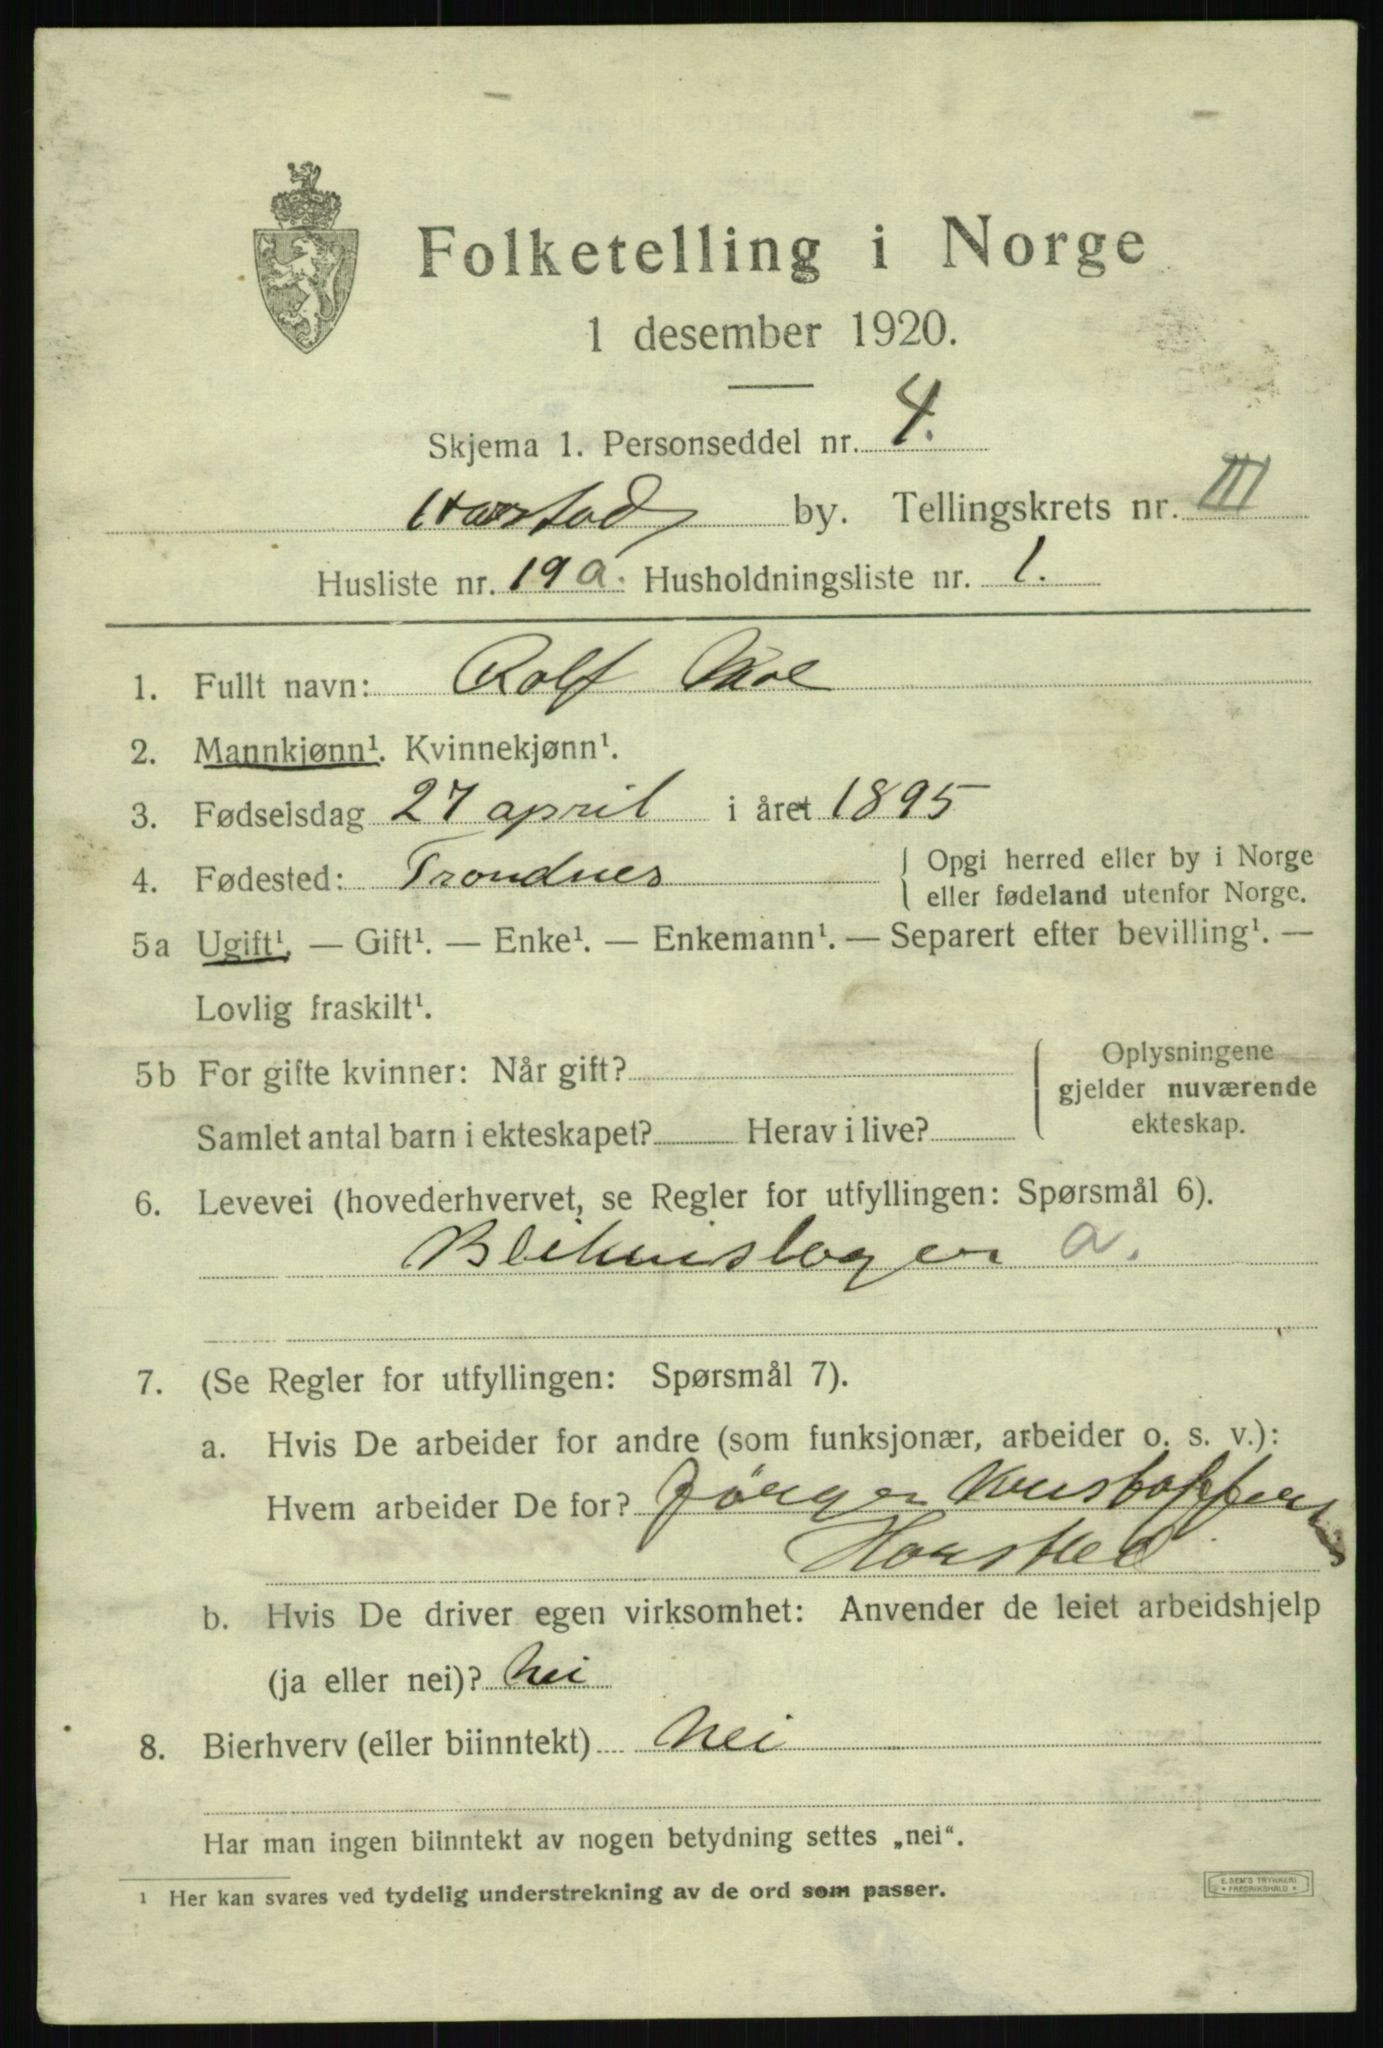 Folketelling i Norge
1 desember 1920.
Skjema 1. Personseddel nr. 4.
Harstad by. Tellingskrets nr. III
Husliste nr. 19 a. Husholdningsliste nr. 1.
1. Fullt navn: Rolf
2. Mannkjønn¹. Kvinnekjønn¹.
3. Fødselsdag 27 april i året 1895
4. Fødested: Trondnes { Opgi herred eller by i Norge
eller fødeland utenfor Norge.
5a Ugift¹. — Gift¹. — Enke¹. — Enkemann¹. — Separert efter bevilling¹. —
Lovlig fraskilt¹.
5b For gifte kvinner: Når gift? { Oplysningene
gjelder nuværende
Samlet antal barn i ekteskapet? Herav i live? ekteskap.
6. Levevei (hovederhvervet, se Regler for utfyllingen: Spørsmål 6).
a.
7. (Se Regler for utfyllingen: Spørsmål 7).
a. Hvis De arbeider for andre (som funksjonær, arbeider o. s. v.):
Hvem arbeider De for? Jörgen
b. Hvis De driver egen virksomhet: Anvender de leiet arbeidshjelp
(ja eller nei)? Nei
8. Bierhverv (eller biinntekt) Nei
Har man ingen biinntekt av nogen betydning settes „nei“.
¹ Her kan svares ved tydelig understrekning av de ord som passer.
E. SEM'S TRYKKERI
FREDRIKSHALD